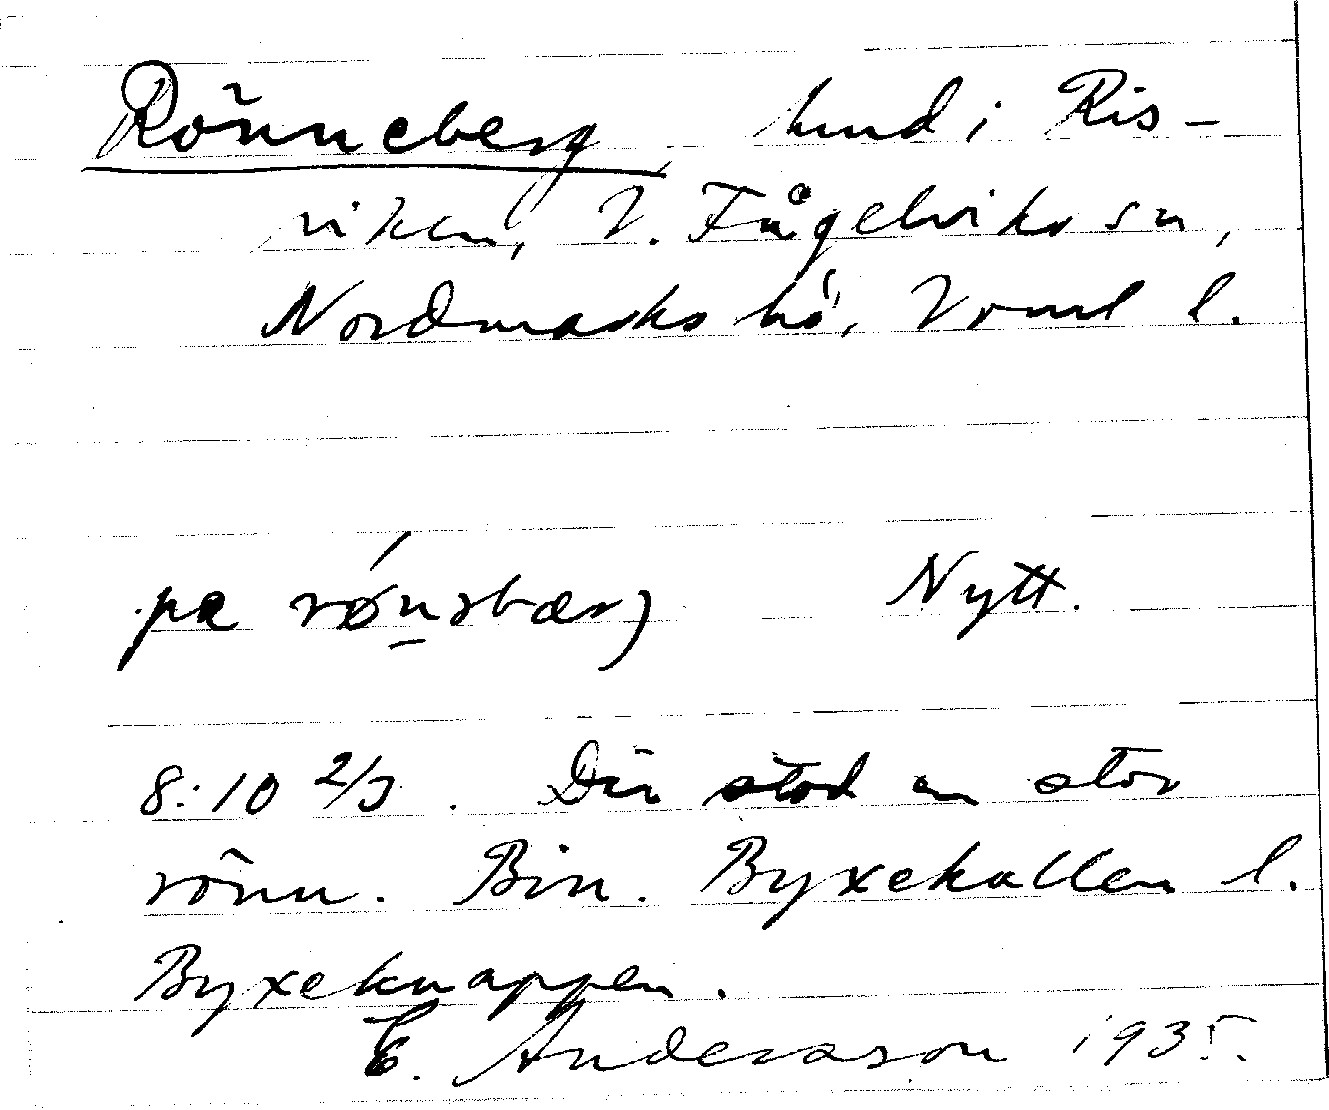 Rönneberg, hmd i Ris-
viken, V. Fågelviks sn,
Nordmarks hd, Vrml l.
pa rǿnsbær) Nytt.
8:10 2/3. Där stod en stor
rönn. Bin. Byxekallen l.
Byxeknappen.
E. Andersson 1935.